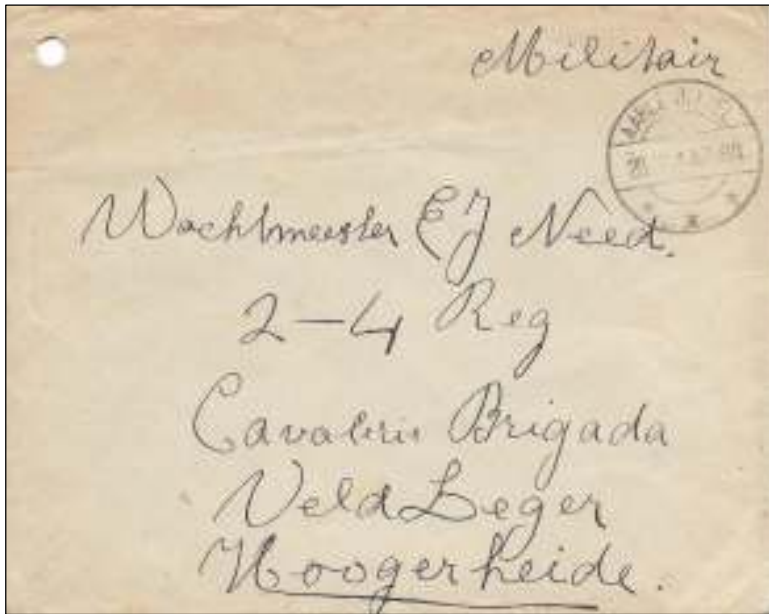 Militair
Wachtmeester EJ Need.
2-4 Reg
Cavalerie Brigada
Veld Leger
Hoogerheide.